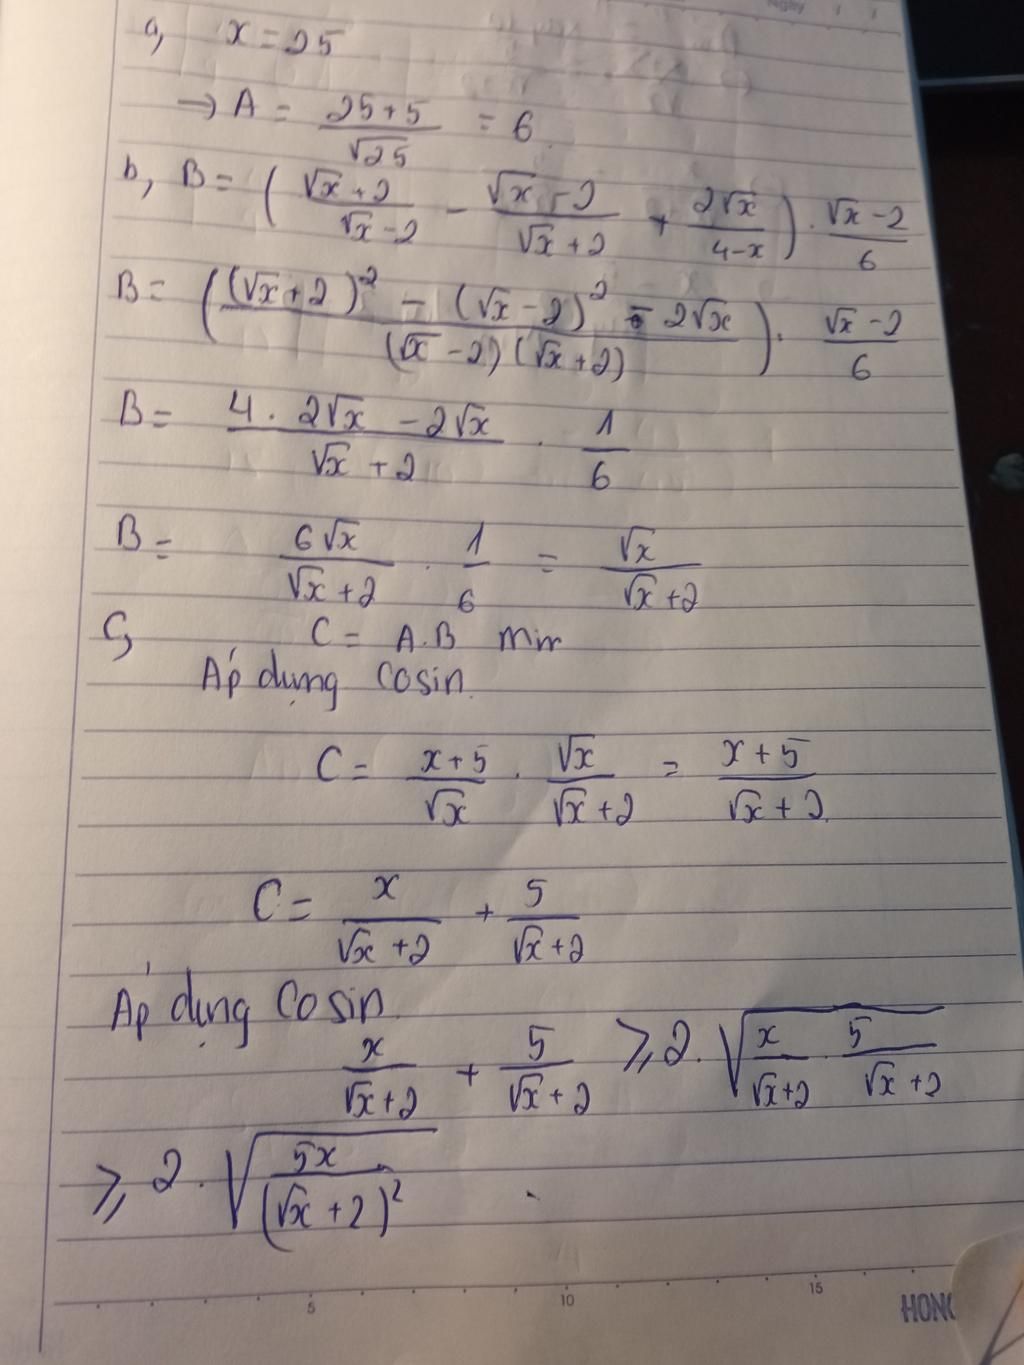 Ngày / /
a, x = 25
→ A = (25+5)/√25 = 6
b, B = ( (√x+2)/(√x-2) - (√x-2)/(√x+2) + 2√x/(4-x) ) . (√x-2)/6
B = ( ((√x+2)² - (√x-2)² - 2√x)/((√x-2)(√x+2)) ) . (√x-2)/6
B = (4.2√x - 2√x)/(√x+2) . 1/6
B = 6√x/(√x+2) . 1/6 = √x/(√x+2)
C, C = A.B Min
Áp dụng Cosin.
C = (x+5)/√x . √x/(√x+2) = (x+5)/(√x+2)
C = x/(√x+2) + 5/(√x+2)
Áp dụng Cosin.
x/(√x+2) + 5/(√x+2) ≥ 2.√(x/(√x+2) . 5/(√x+2))
≥ 2.√(5x/(√x+2)²)
5 10 15
HONG